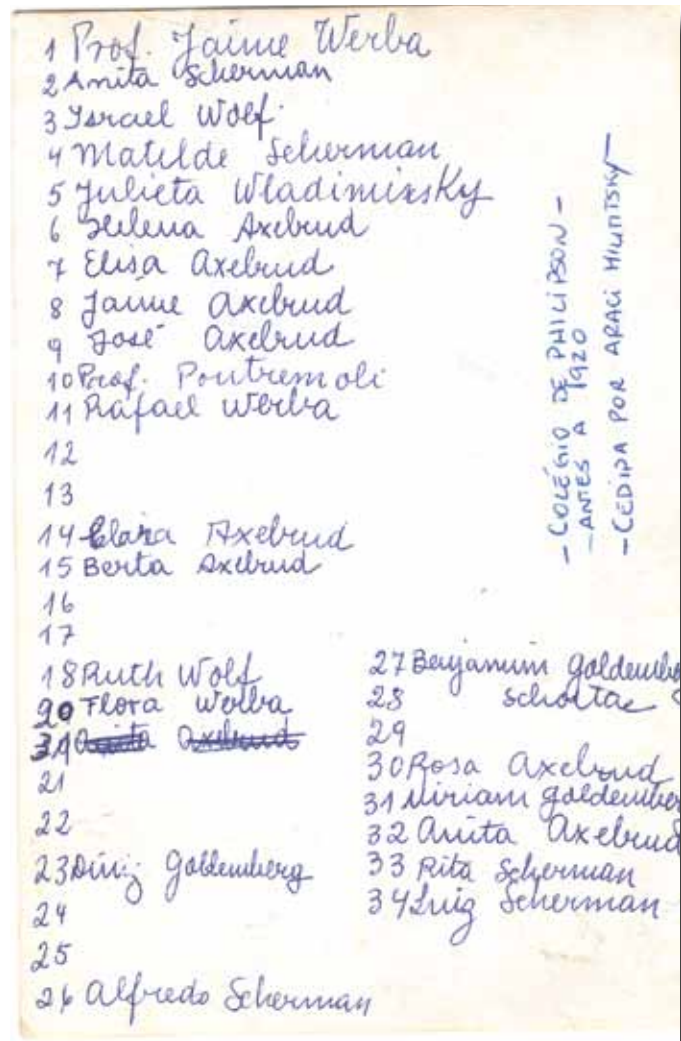 1 Prof. Jaime Werba
2 Anita Scherman
3 Israel Wolf.
4 Matilde Scherman
5 Julieta Wladimirsky
6 Helena Axebrud
7 Elisa Axebrud
8 Jaime Axebrud
9 José Axebrud
10 Prof. Pontremoli
11 Rafael Werba
12
13
14 Clara Axebrud
15 Berta Axebrud
16
17
18 Ruth Wolf
20 Flora Werba
Anita Axebrud
21
22
23 Diniz Goldemberg
24
25
26 Alfredo Scherman
27 Benjamim Goldemb
28
29
30 Rosa Axebrud
31 Miriam Goldember
32 Anita Axebrud
33 Rita Scherman
34 Luiz Scherman
- COLÉGIO DE PHILIPSON -
- ANTES A 1920
- CEDIDA POR ARACI